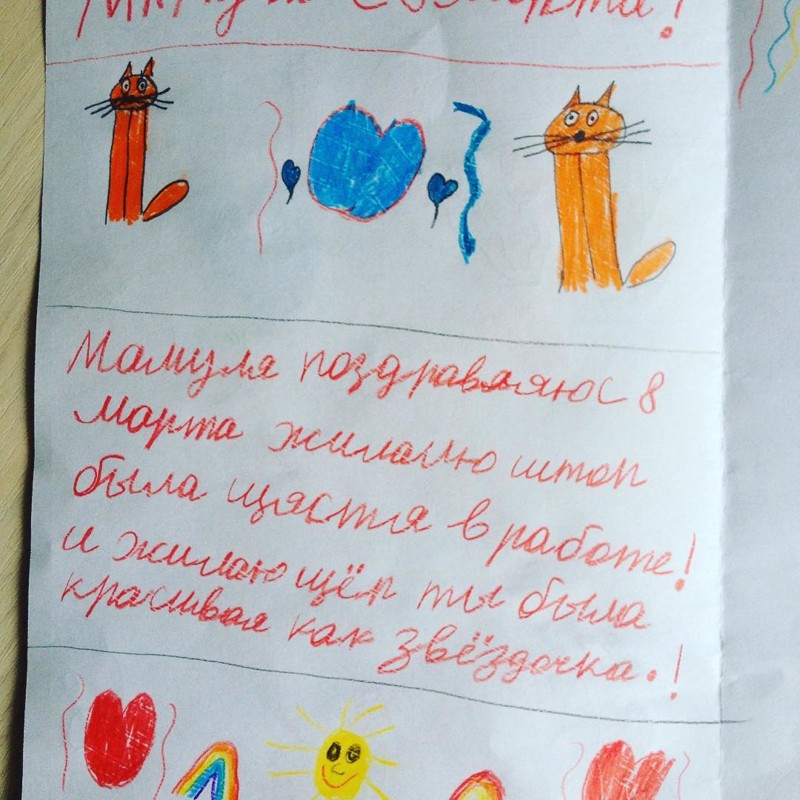 Мамуля поздравляюс 8
Марта жилаию штоп
была щястя в работе!
и жилаю щёп ты была
красивая как звёздочка.!